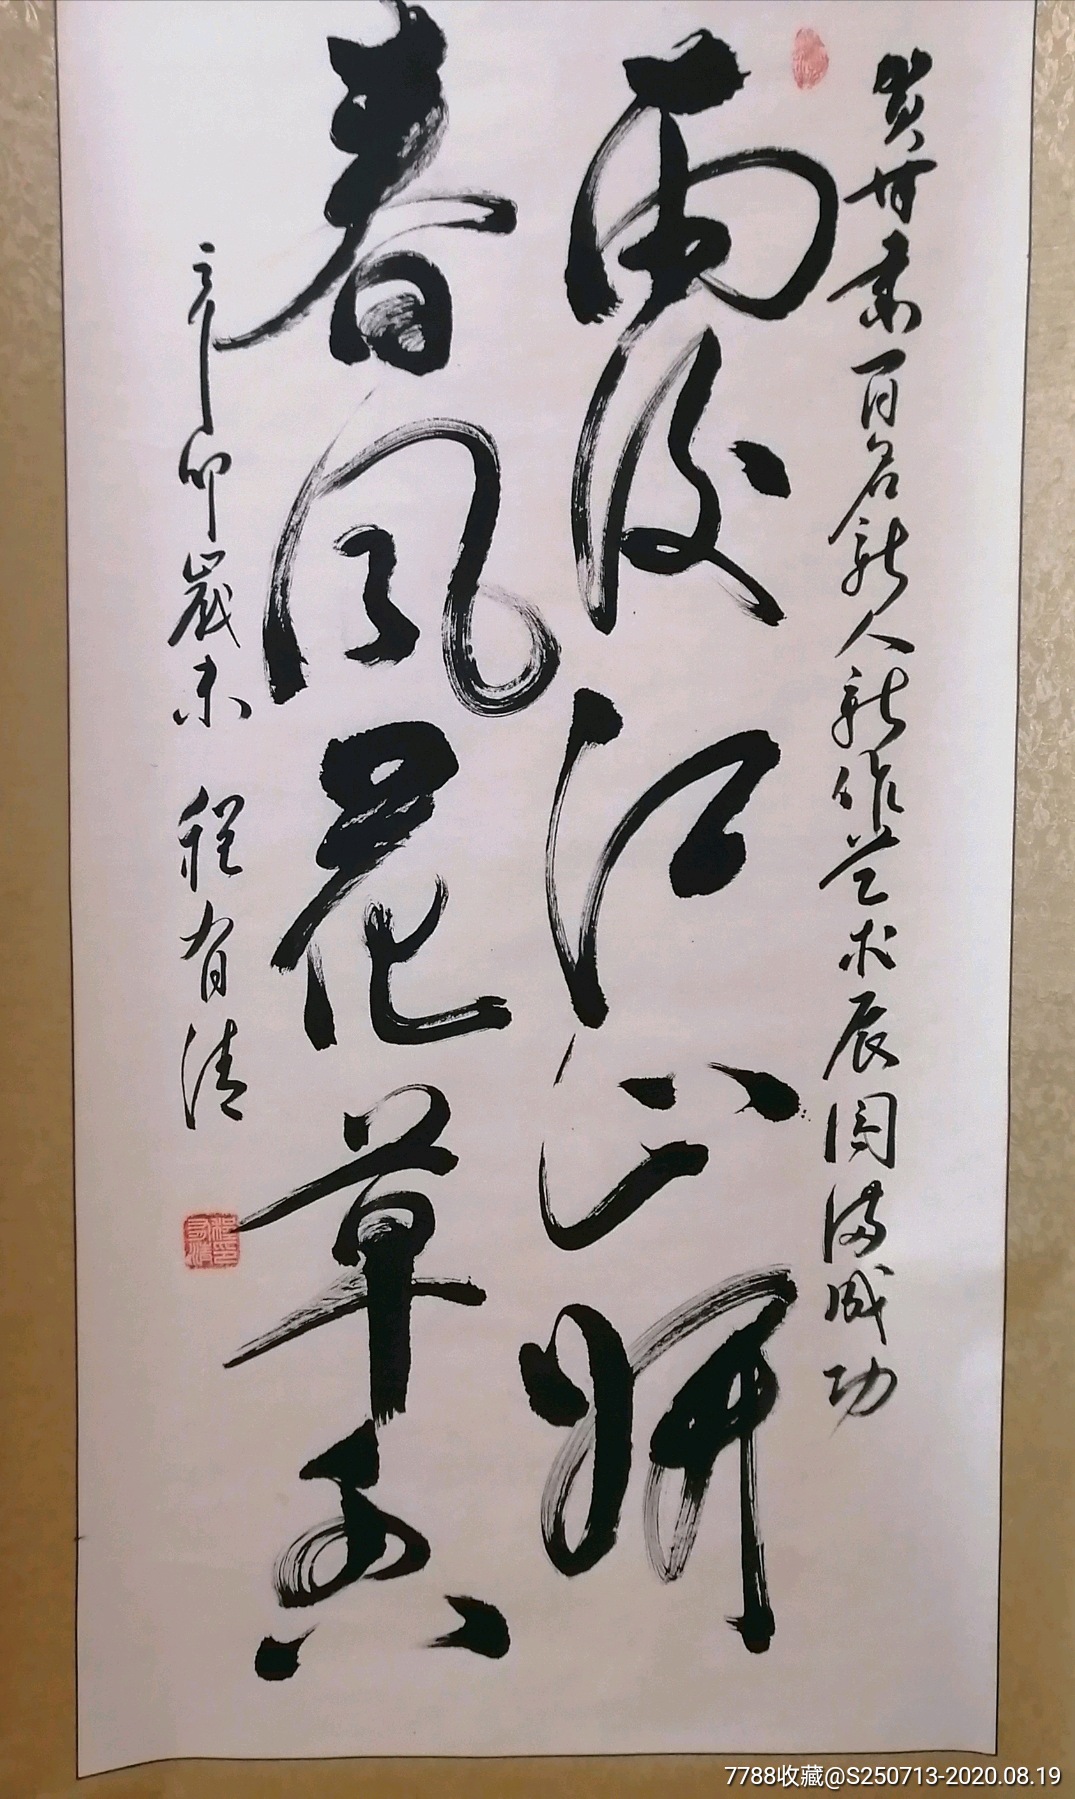 贺甘肃百名新人新作艺术展圆满成功
雨後江山妍
春风花草香
辛卯歲末 程有清
程印有清
7788收藏@S250713-2020.08.19